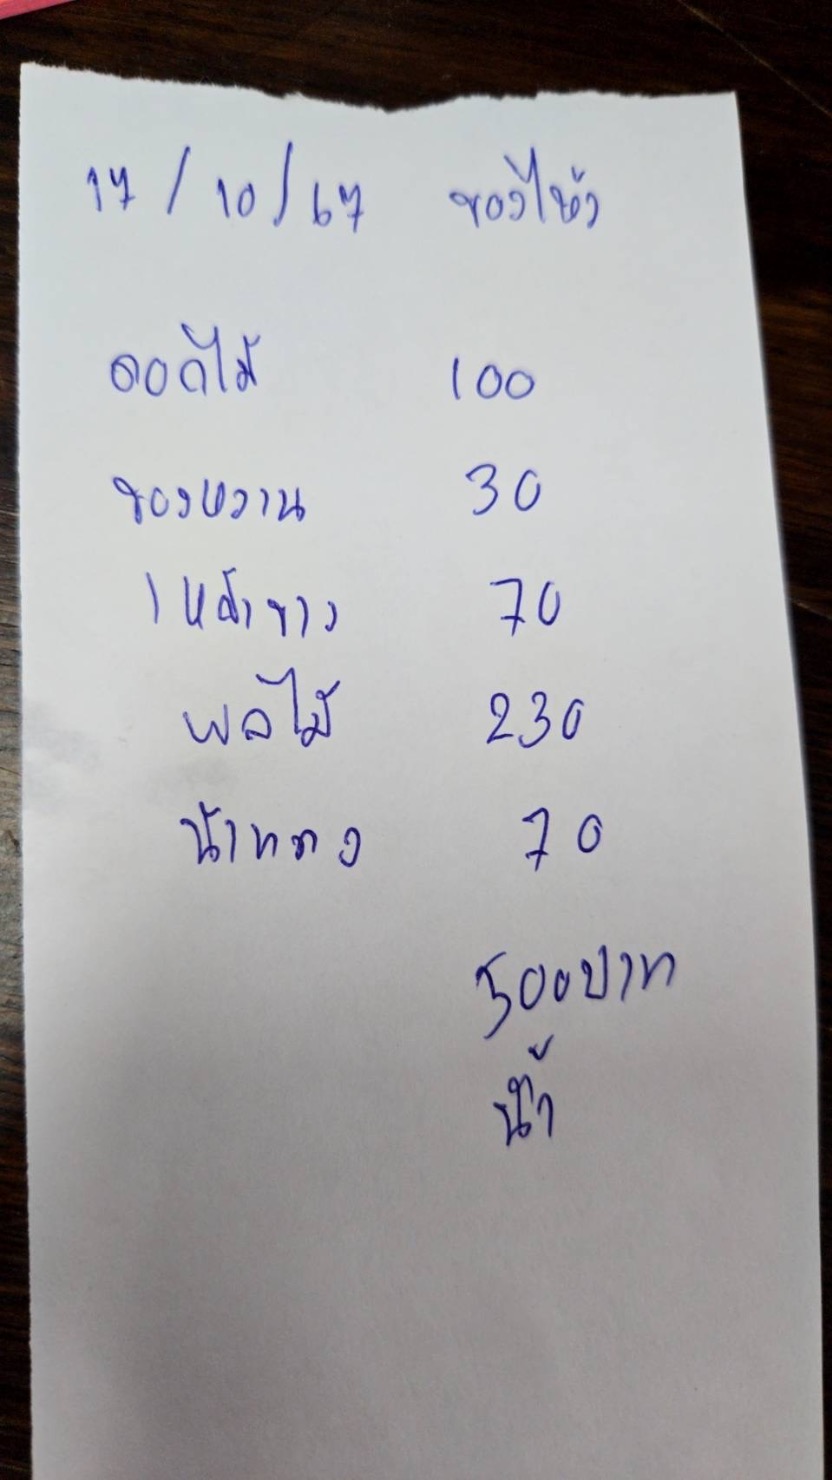 17/10/67 ของไหว้
ดอกไม้ 100
ของหวาน 30
เหล้าขาว 70
ผลไม้ 230
น้ำแดง 70
500บาท
น้ำ